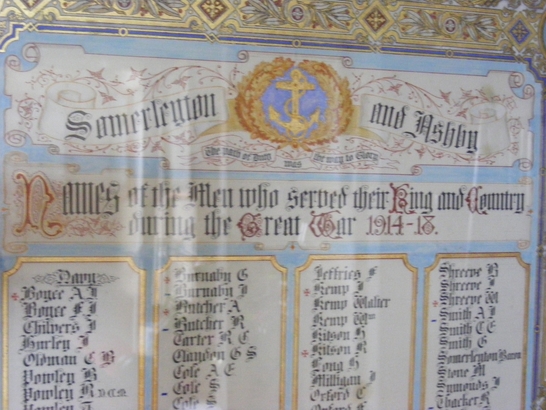 Somerleyton and Ashby
The path of Duty was the way to Glory
Names of the Men who served their King and Country
during the Great War 1914-18.
Navy
Boyce A J
Boyce F J
Chilvers J
Hurley J
Oldman C B
Powley B
Powley R D.C.M.
Powley T
Burnaby G
Burnaby J
Butcher A
Butcher R
Carter R C
Claydon G S
Cole A E
Cole S
Cole S
Jeffries F
Kemp J
Kemp Walter
Kemp Wm
Kitson H
Kitson R
Long H
Milligan J
Orford C
Orford
Shreeve B
Shreeve J
Shreeve W
Smith A J
Smith C E
Smith G
Somerleyton Baron
Stone M
Symonds J
Thacker R